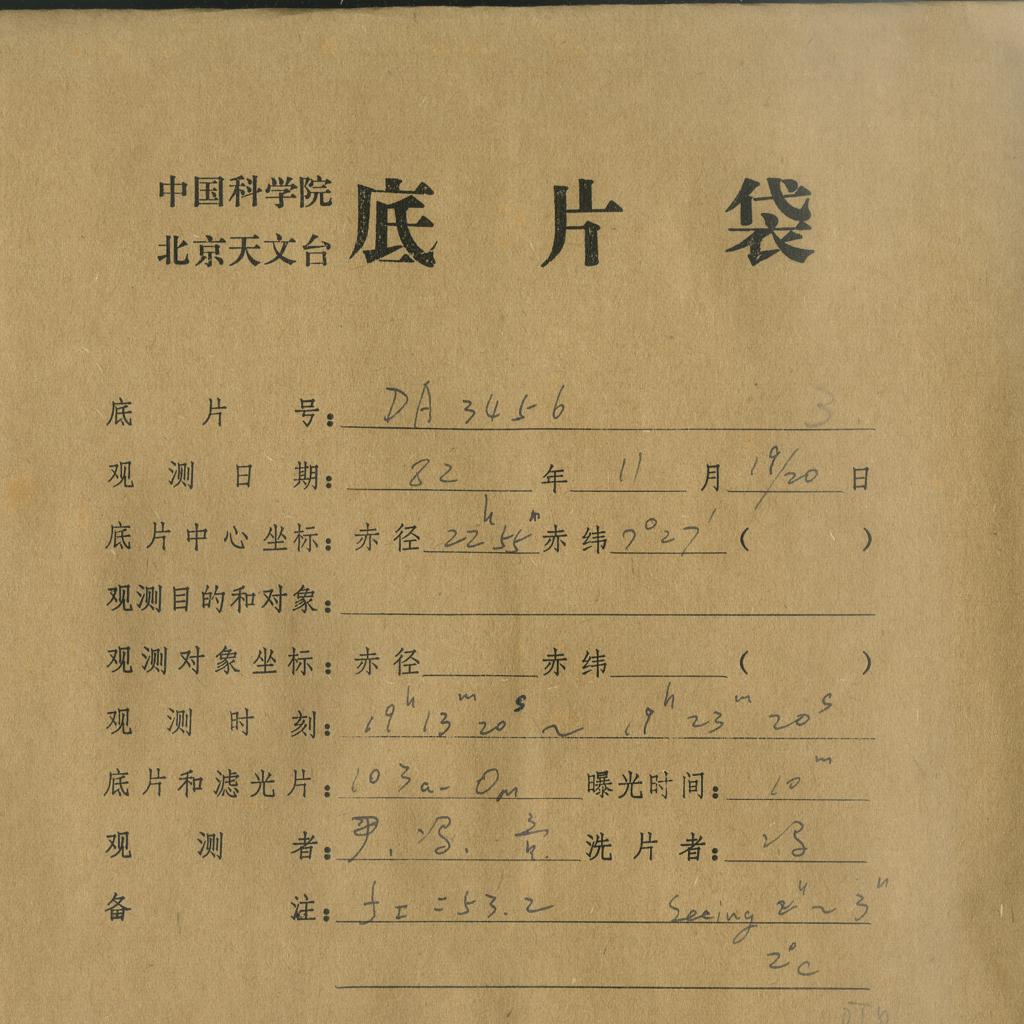 中国科学院
北京天文台
底片袋
底片号: DA 3456 3
观测日期: 82 年 11 月 19/20 日
底片中心坐标: 赤径 22h55m 赤纬 7°27′ ( )
观测目的和对象:
观测对象坐标: 赤径 赤纬 ( )
观测时刻: 19h 13m 20s ~ 19h 23m 20s
底片和滤光片: 103a-O 曝光时间: 10m
观测者: 尹. 冯. 洗片者: 冯
备注: = 53.2 Seeing 2″~3″
2°C